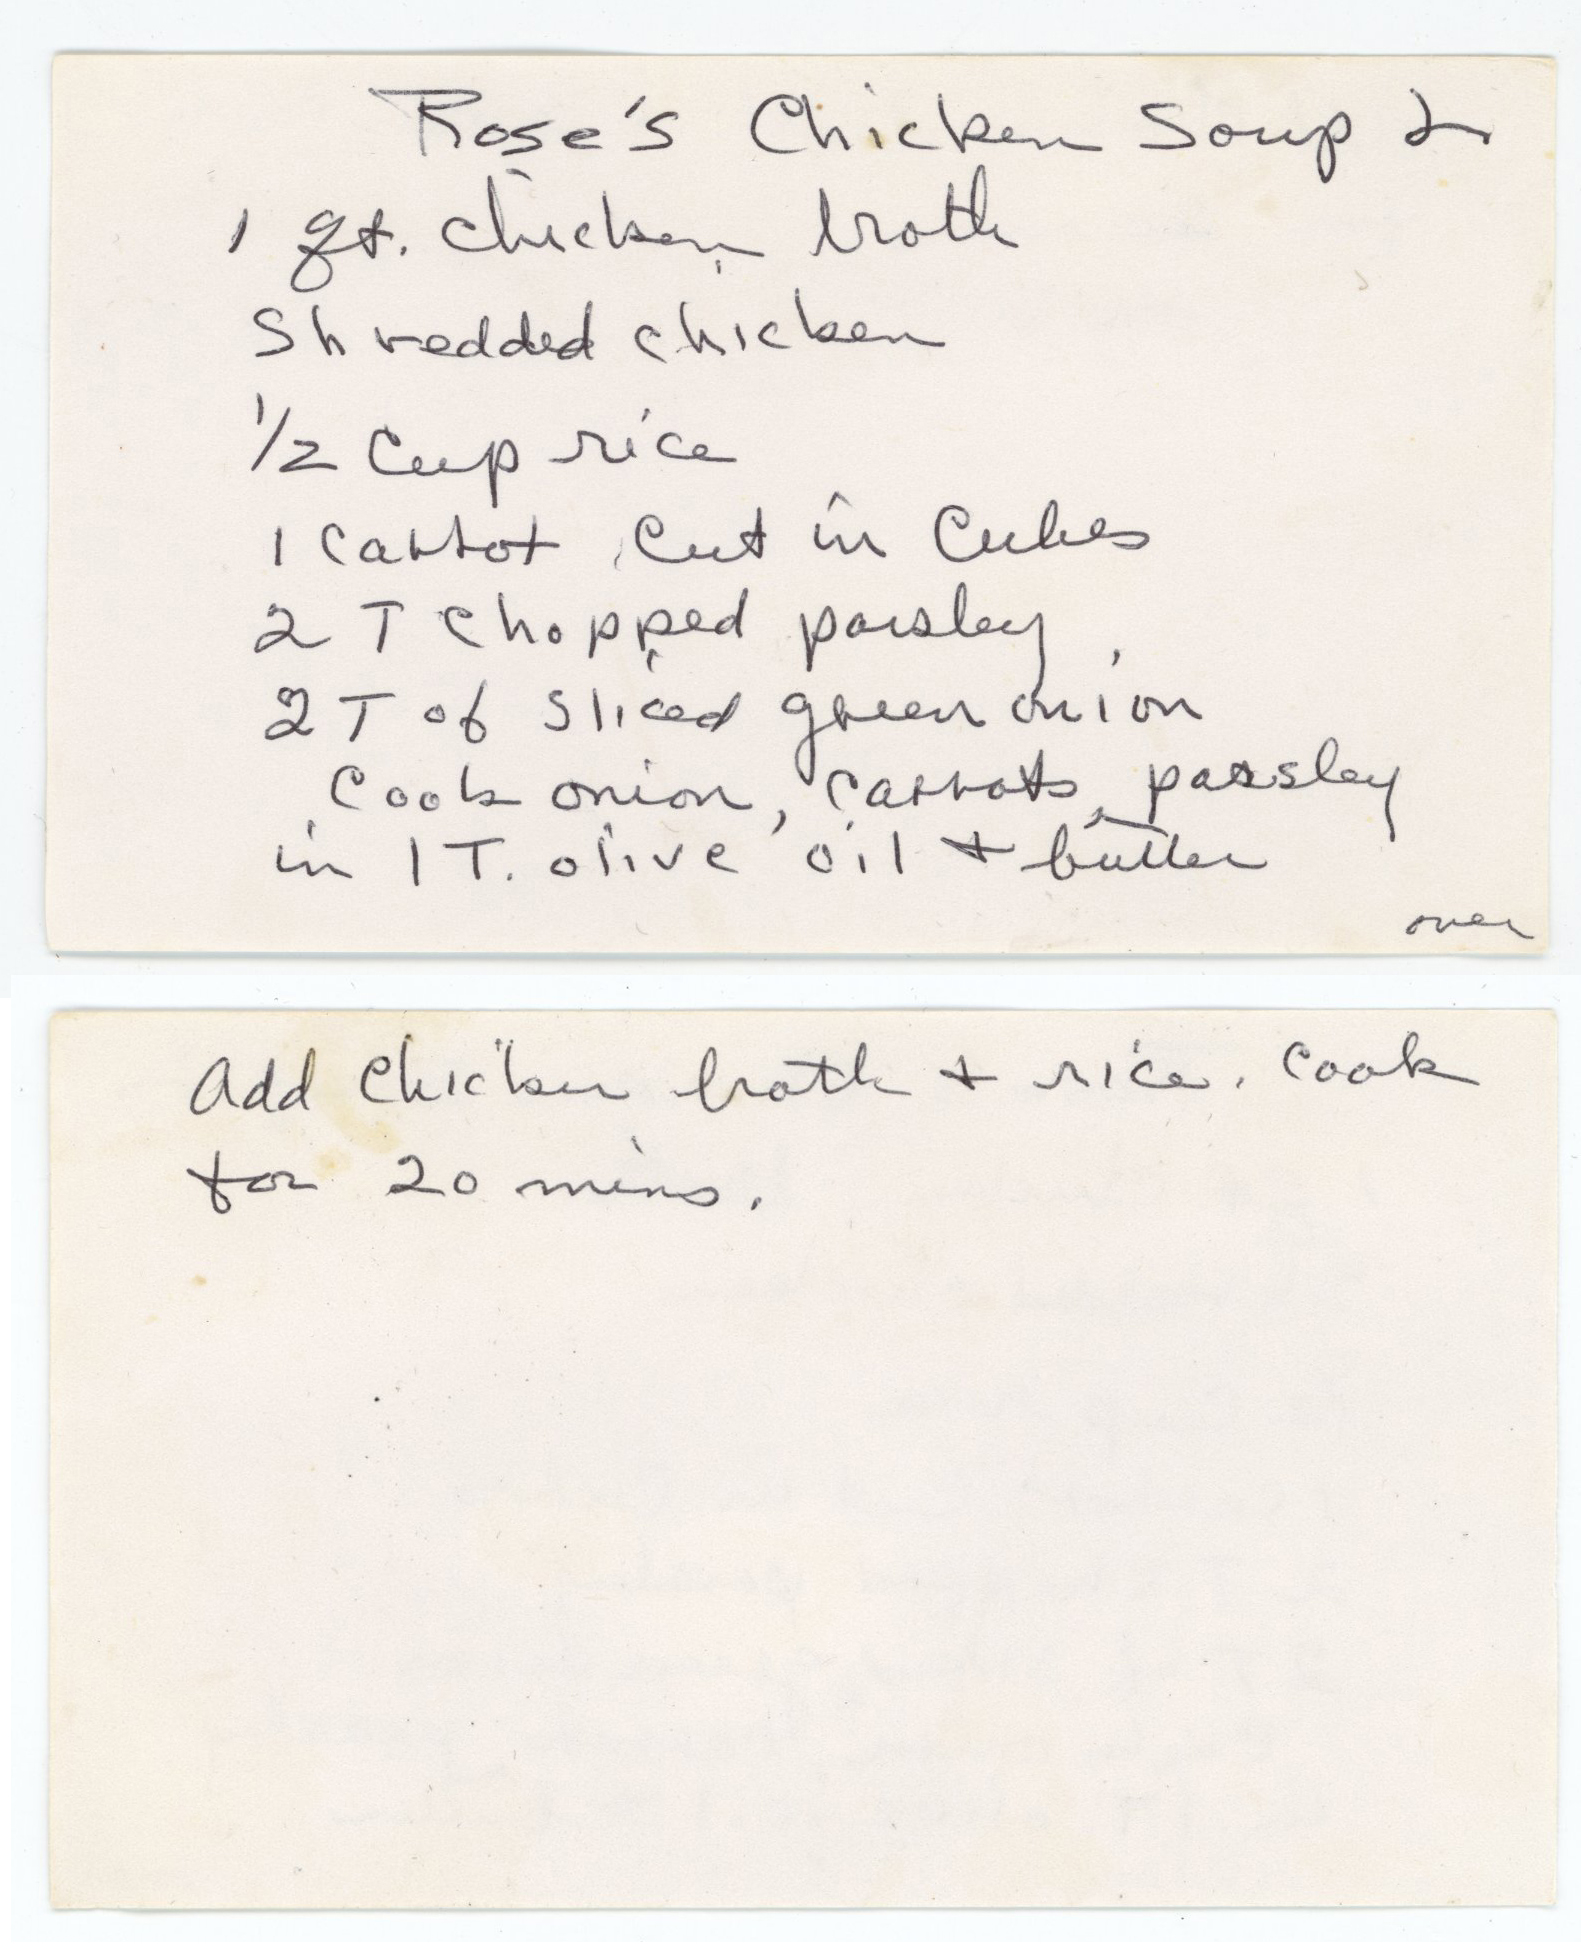 Rose's Chicken Soup 2
1 qt. chicken broth
Shredded chicken
1/2 Cup rice
1 Carrot Cut in Cubes
2 T chopped parsley
2 T of sliced green onion
Cook onion, carrots, parsley
in 1 T. olive oil + butter
over
Add chicken broth + rice. Cook
for 20 mins.